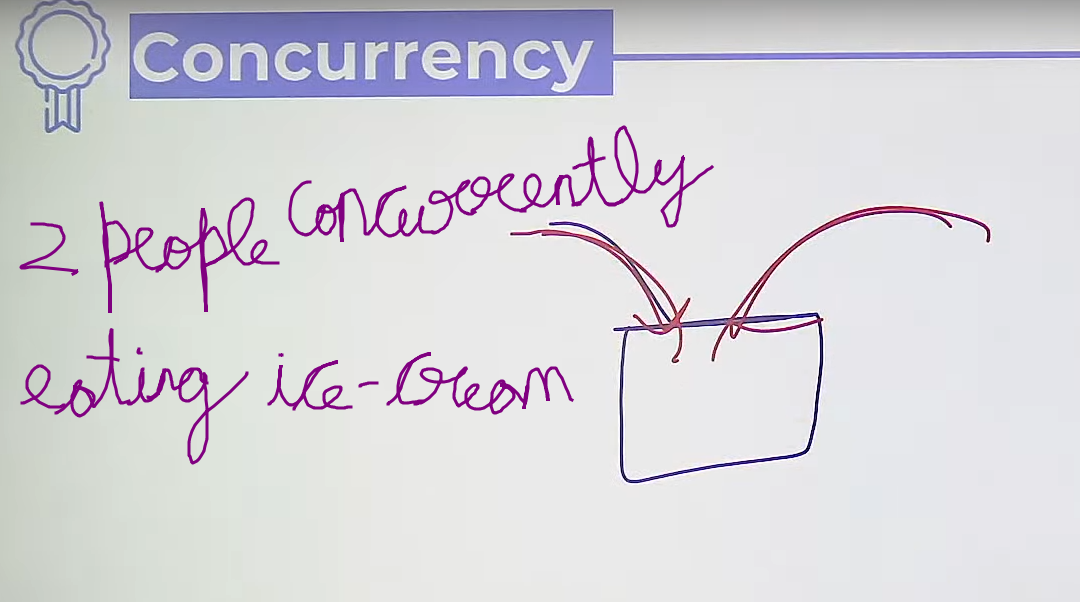 Concurrency
2 people Concurrently
eating ice-cream